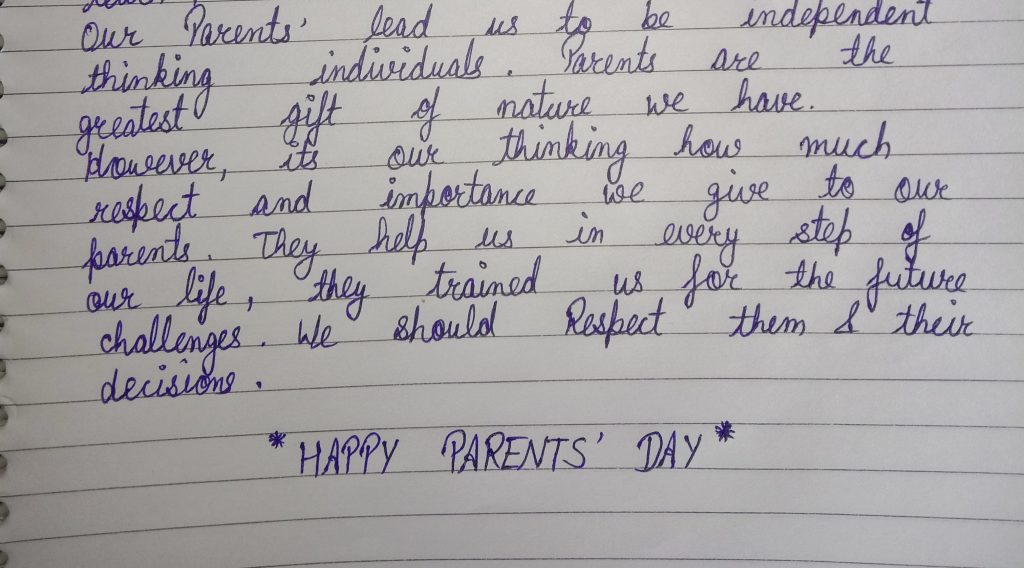 Our Parents' lead us to be independent
thinking individuals. Parents are the
greatest gift of nature we have.
However, its our thinking how much
respect and importance we give to our
parents. They help us in every step of
our life, they trained us for the future
challenges. We should Respect them & their
decisions.
* HAPPY PARENTS' DAY *